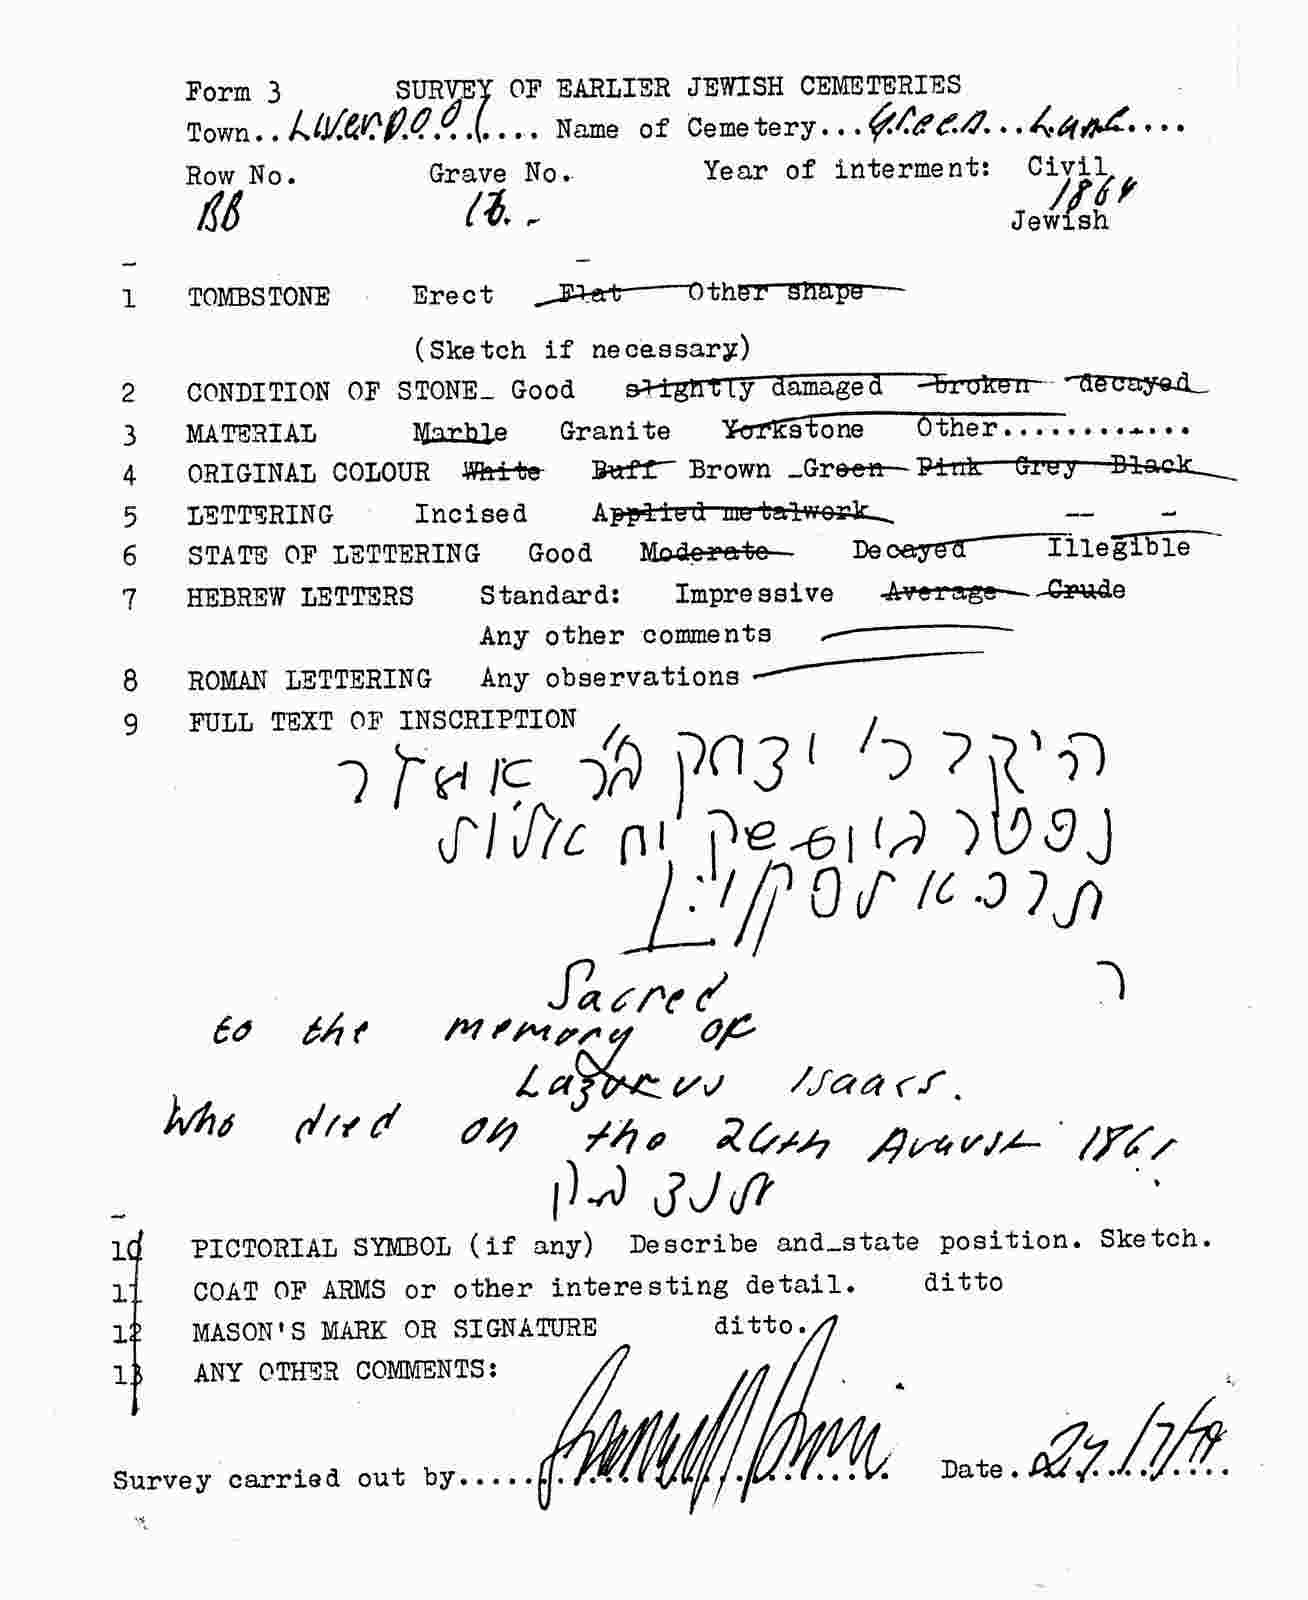 Form 3 SURVEY OF EARLIER JEWISH CEMETERIES
Town..Liverpool.... Name of Cemetery...Green...Lane....
Row No. Grave No. Year of interment: Civil
1864
BB Jewish
1 TOMBSTONE Erect Flat Other shape
(Sketch if necessary)
2 CONDITION OF STONE_ Good slightly damaged broken decayed
3 MATERIAL Marble Granite Yorkstone Other............
4 ORIGINAL COLOUR White Buff Brown _Green Pink Grey Black
5 LETTERING Incised Applied metalwork
6 STATE OF LETTERING Good Moderate Decayed Illegible
7 HEBREW LETTERS Standard: Impressive Average Crude
Any other comments
8 ROMAN LETTERING Any observations
9 FULL TEXT OF INSCRIPTION
היקר ר' יצחק
נפטר יום שק יח אלול
Sacred
to the memory of
Lazarus Isaacs.
Who died on the 24th August 1861
תנצבה
10 PICTORIAL SYMBOL (if any) Describe and_state position. Sketch.
11 COAT OF ARMS or other interesting detail. ditto
12 MASON'S MARK OR SIGNATURE ditto.
13 ANY OTHER COMMENTS:
Survey carried out by.....
Date.